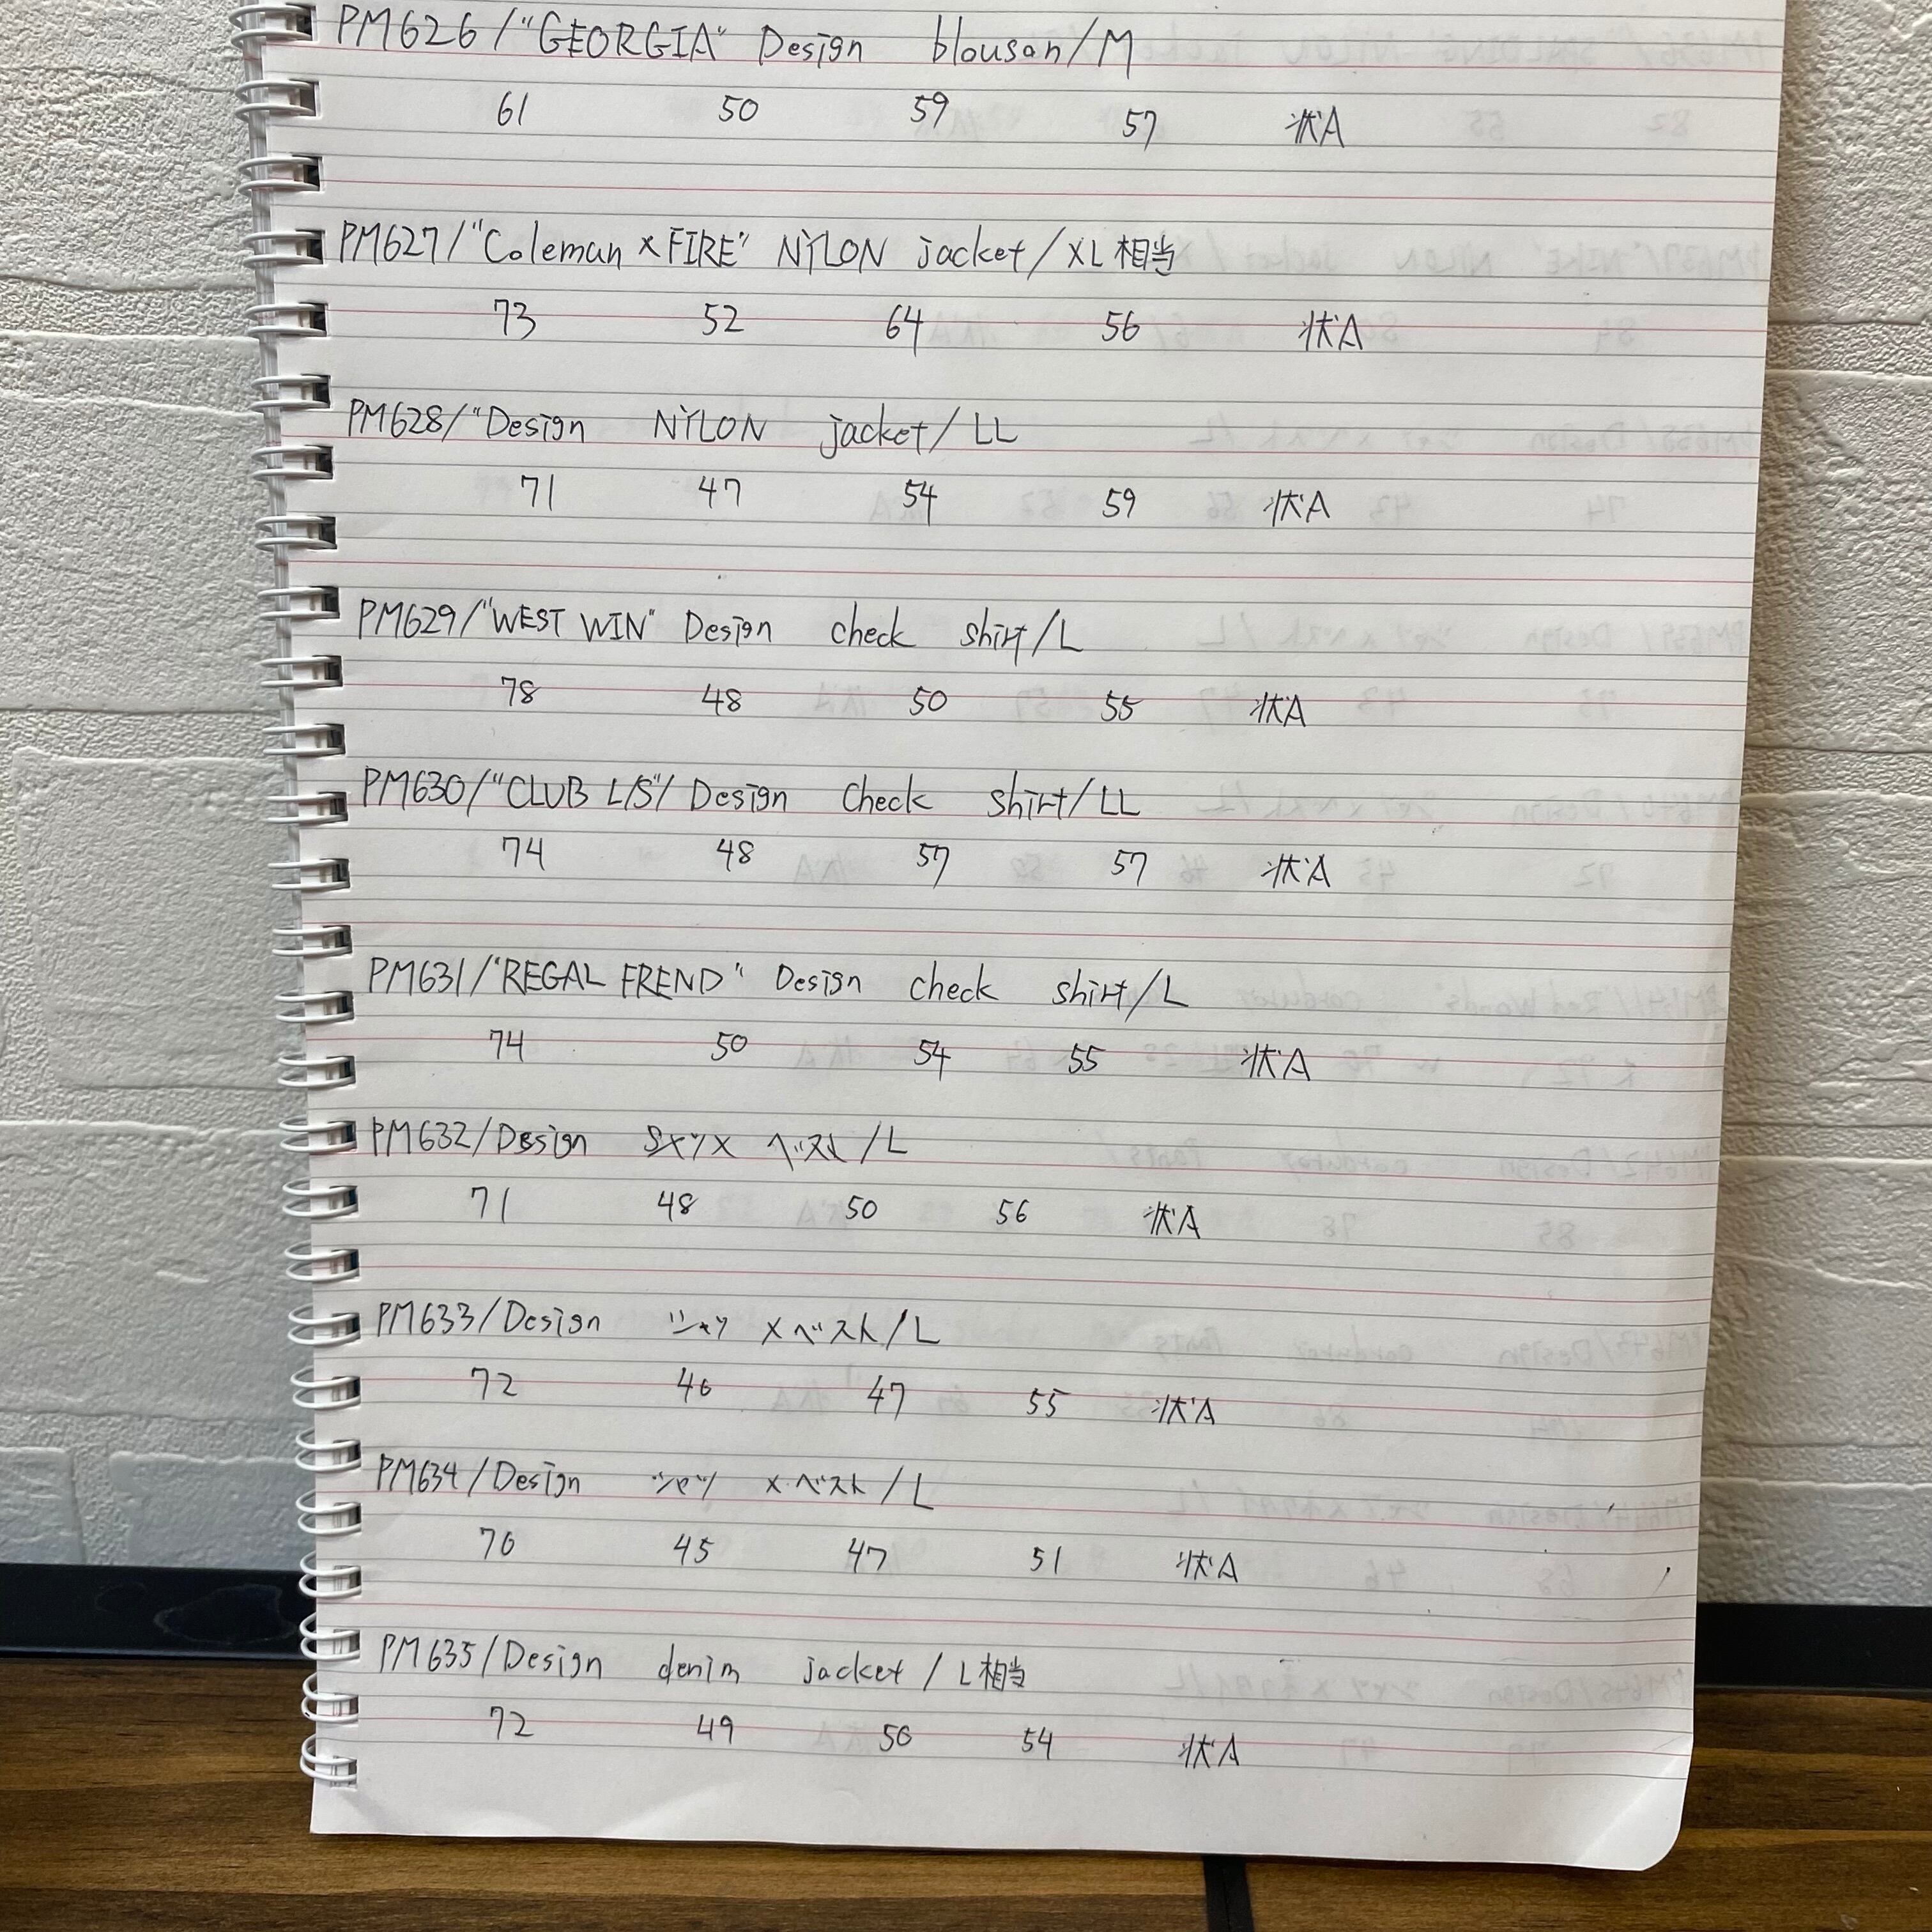 PM626/"GEORGIA" Design blouson/M
61 50 59 57 状A
PM627/"Coleman×FIRE" NYLON jacket/XL相当
73 52 64 56 状A
PM628/"Design NYLON jacket/LL
71 47 54 59 状A
PM629/"WEST WIN" Design check shirt/L
78 48 50 55 状A
PM630/"CLUB L/S"/ Design check shirt/LL
74 48 57 57 状A
PM631/"REGAL FREND" Design check shirt/L
74 50 54 55 状A
PM632/Design シャツ× ベスト/L
71 48 50 56 状A
PM633/Design シャツ ×ベスト/L
72 46 47 55 状A
PM634/Design シャツ ×ベスト/L
70 45 47 51 状A
PM635/Design denim jacket/L相当
72 49 50 54 状A